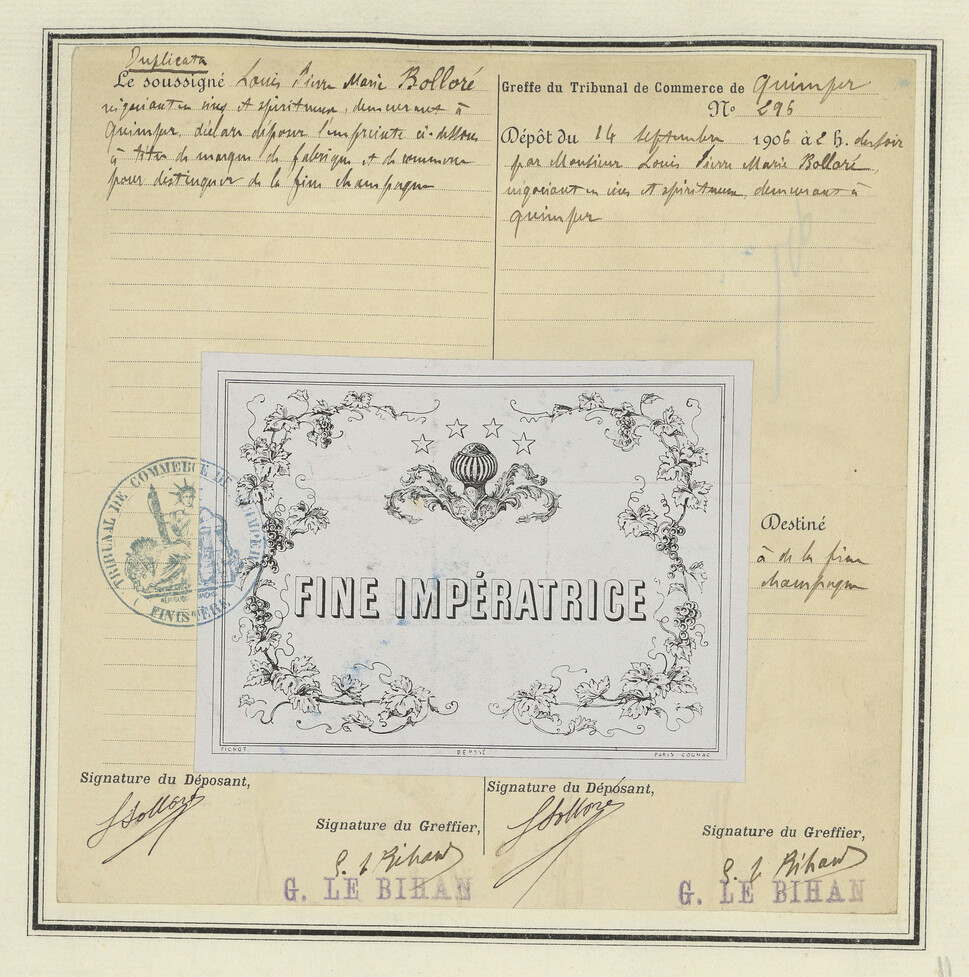 Duplicata
Le soussigné Louis Pierre Marie Bolloré
négociant en vins et spiritueux, demeurant à
Quimper, déclare déposer l'empreinte ci-dessous
à titre de marque de fabrique et de commerce
pour distinguer de la fine champagne
Greffe du Tribunal de Commerce de Quimper
No 296
Dépôt du 14 septembre 1906 à 2 h. du soir
par Monsieur Louis Pierre Marie Bolloré,
négociant en vins et spiritueux, demeurant à
Quimper
TRIBUNAL DE COMMERCE DE QUIMPER
FINISTÈRE
FINE IMPÉRATRICE
PICHOT
DÉPOSÉ
PARIS COGNAC
Destiné
à de la fine
champagne
Signature du Déposant,
LBolloré
Signature du Greffier,
G. Le Bihan
G. LE BIHAN
Signature du Déposant,
LBolloré
Signature du Greffier,
G. Le Bihan
G. LE BIHAN